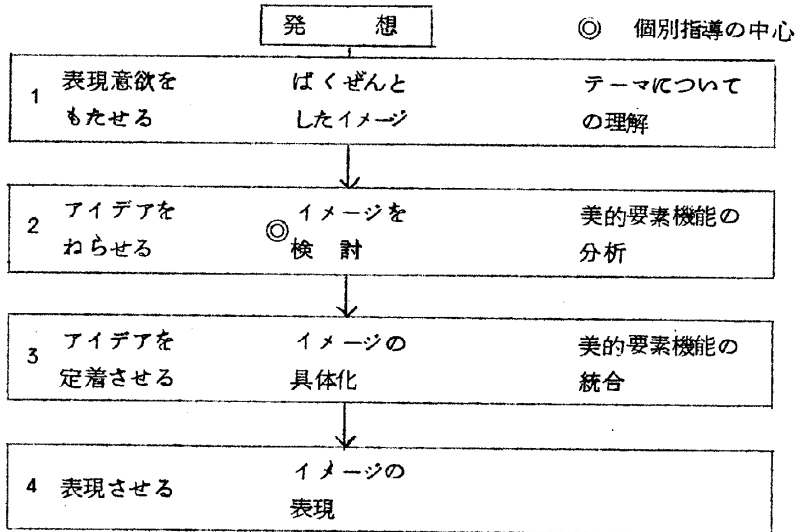 発　想
◎　個別指導の中心
1　表現意欲をもたせる　ばくぜんとしたイメージ　テーマについての理解
2　アイデアをねらせる　◎イメージを検　討　美的要素機能の分析
3　アイデアを定着させる　イメージの具体化　美的要素機能の統合
4　表現させる　イメージの表現